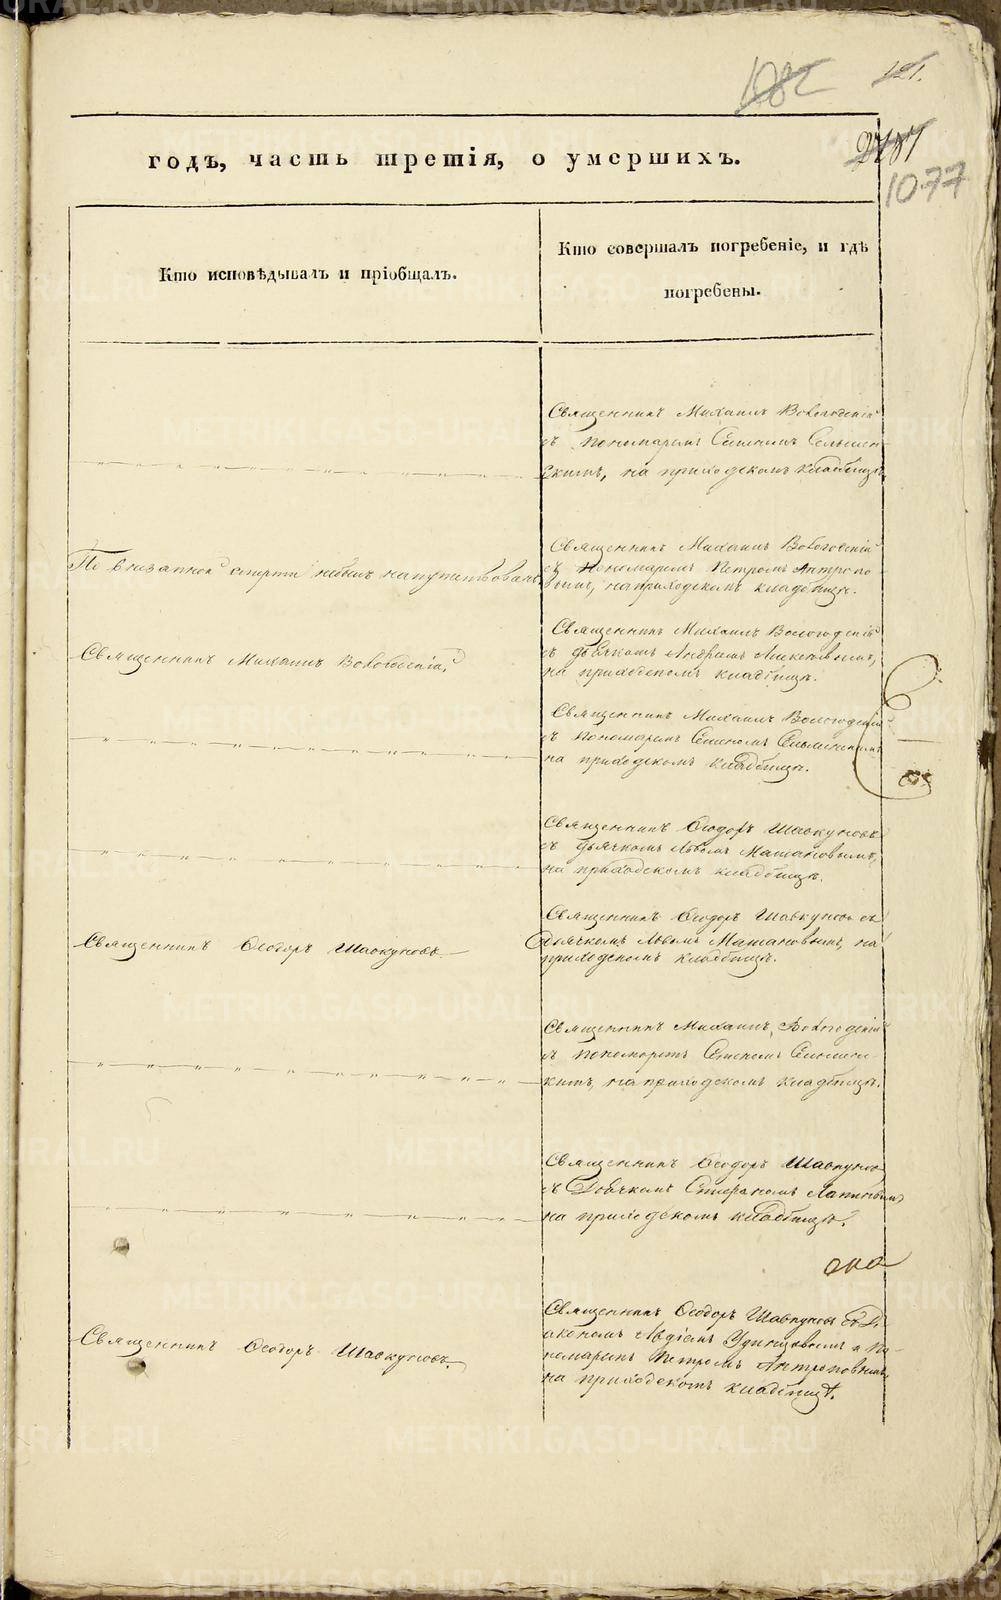 121.
1077
годъ, часть третія, о умершихъ.
Кто исповѣдывалъ и пріобщалъ.
Кто совершалъ погребеніе, и гдѣ
погребены.
Священникъ Михаилъ Вологодскій
съ пономаремъ Симеономъ
на приходскомъ кладбищѣ.
По внезапной смерти небылъ напутствованъ.
Священникъ Михаилъ Вологодскій
съ пономаремъ Петромъ Антропо
вымъ, на приходскомъ кладбищѣ.
Священникъ Михаилъ Вологодскій,
Священникъ Михаилъ Вологодскій
съ дьячкомъ Андреемъ
на приходскомъ кладбищѣ.
Священникъ Михаилъ Вологодскій
съ пономаремъ
на приходскомъ кладбищѣ.
Священникъ Ѳеодоръ Шавкуновъ
съ дьячкомъ Львомъ Мамановымъ,
на приходскомъ кладбищѣ.
Священникъ Ѳеодоръ Шавкуновъ
Священникъ Ѳеодоръ Шавкуновъ съ
Дьячкомъ Львомъ Мамановымъ, на
приходскомъ кладбищѣ.
Священникъ Михаилъ Вологодскій
съ пономаремъ
на приходскомъ кладбищѣ.
Священникъ Ѳеодоръ Шавкуновъ
съ Дьячкомъ Стефаномъ Лапинымъ
на приходскомъ кладбищѣ.
Священникъ Ѳеодоръ Шавкуновъ
Священникъ Ѳеодоръ Шавкуновъ съ Ді
акономъ Авдіемъ Удинцовымъ и По-
номаремъ Петромъ Антроповымъ
на приходскомъ кладбищѣ.
METRIKI.GASO-URAL.RU